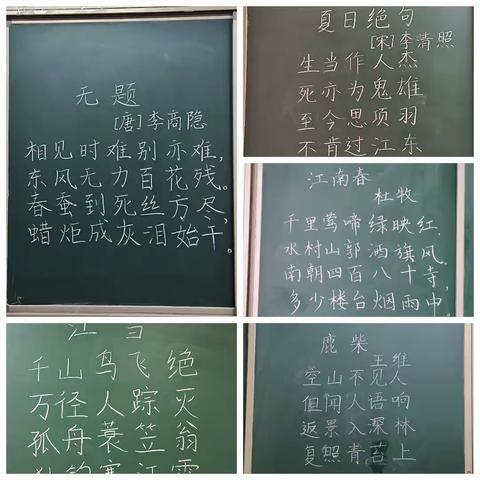 无题
[唐]李商隐
相见时难别亦难,
东风无力百花残。
春蚕到死丝方尽,
蜡炬成灰泪始干。
夏日绝句
[宋]李清照
生当作人杰
死亦为鬼雄
至今思项羽
不肯过江东
江南春
杜牧
千里莺啼绿映红.
水村山郭酒旗风.
南朝四百八十寺,
多少楼台烟雨中.
江雪
千山鸟飞绝
万径人踪灭
孤舟蓑笠翁
独钓寒江雪
鹿柴
王维
空山不见人
但闻人语响
返景入深林
复照青苔上